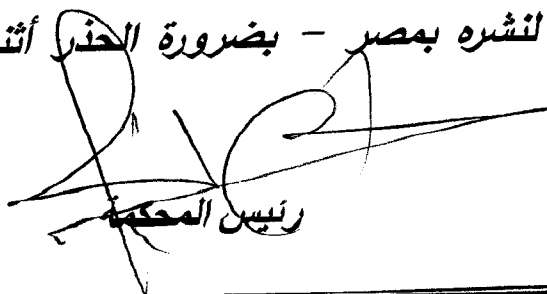 لنشره بمصر - بضرورة الحذر أثن
رئيس المحكمة